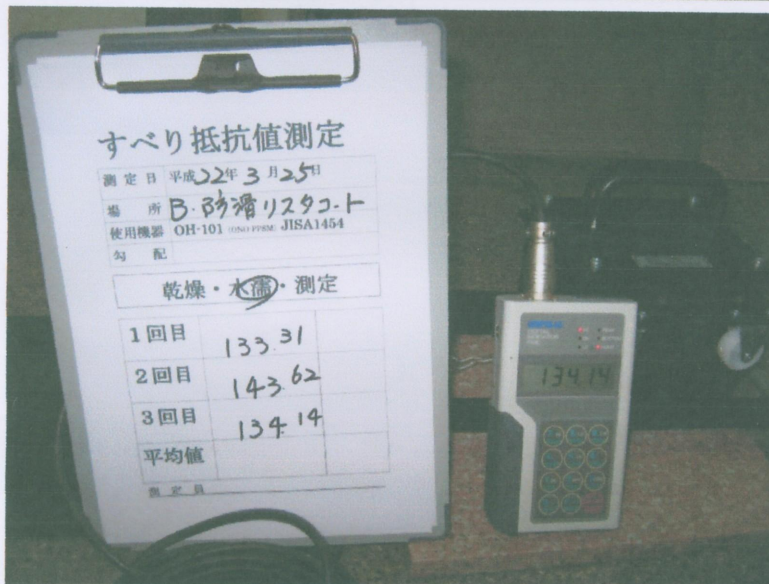 すべり抵抗値測定
測定日 平成22年3月25日
場所 B.防滑リスタコート
使用機器 OH-101 (ONO PPSM) JISA1454
勾配
乾燥・水濡・測定
1回目 133.31
2回目 143.62
3回目 134.14
平均値
測定員
134.14